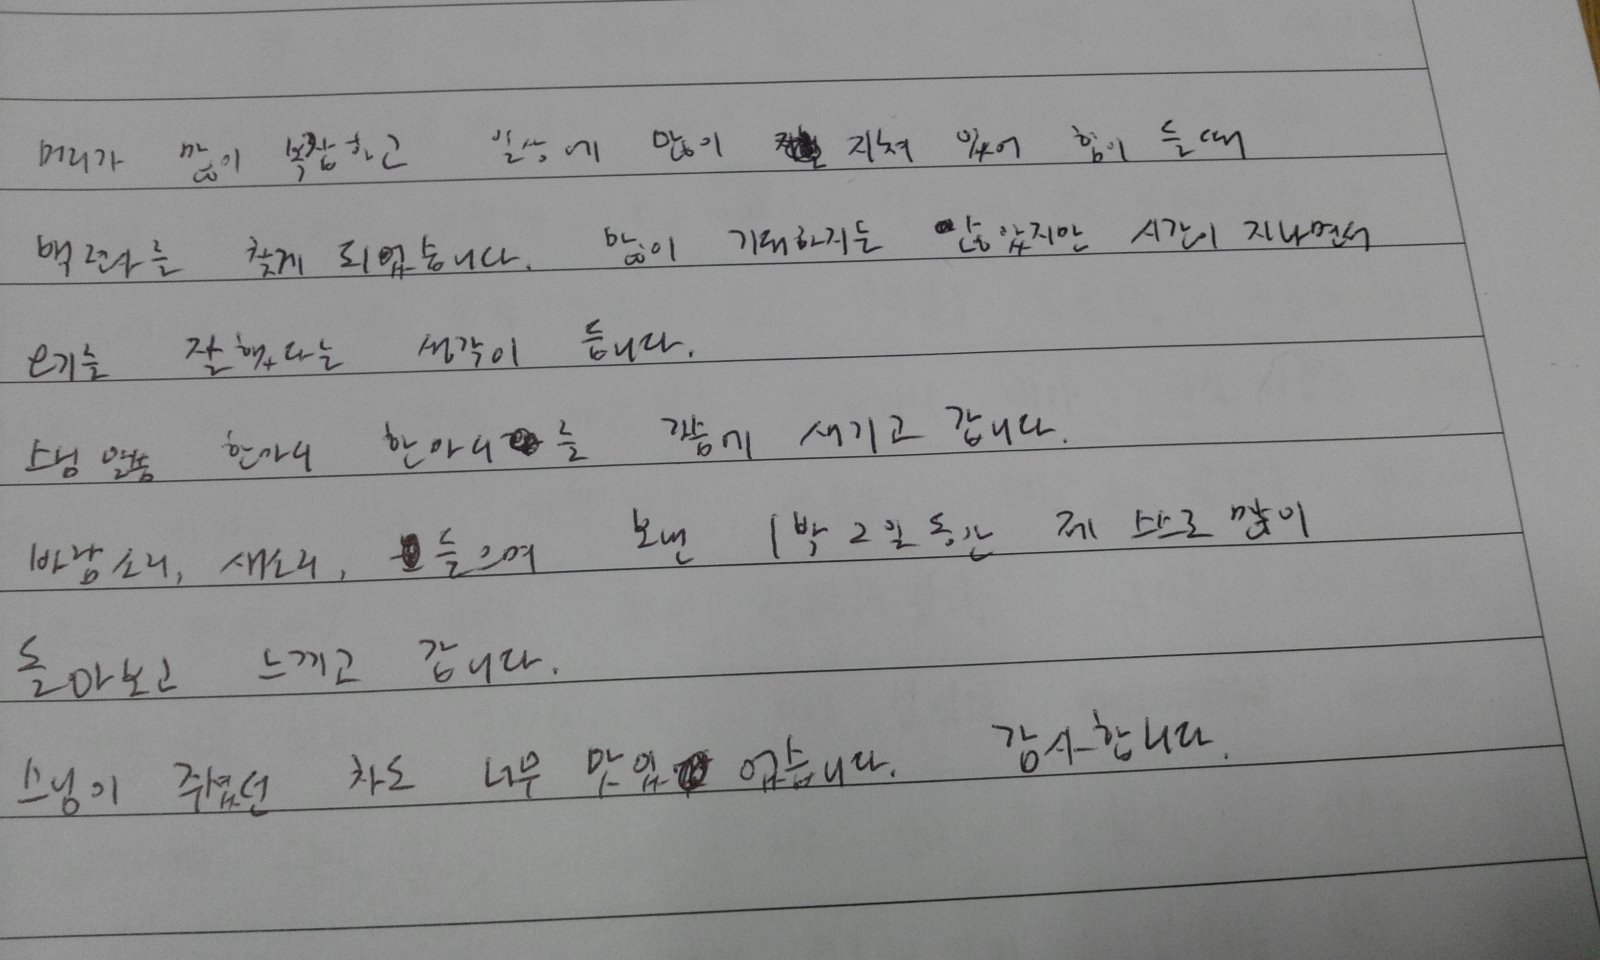 머리가 많이 복잡하고 일상에 많이 지쳐 있어 힘이 들때
백련사를 찾게 되었습니다. 많이 기대하지는 않았지만 시간이 지나면서
오기를 잘했다는 생각이 듭니다.
스님 말씀 한마디 한마디를 가슴에 새기고 갑니다.
바람소리, 새소리, 들으며 보낸 1박2일동안 제 스스로 많이
돌아보고 느끼고 갑니다.
스님이 주셨던 차도 너무 맛있 었습니다. 감사합니다.